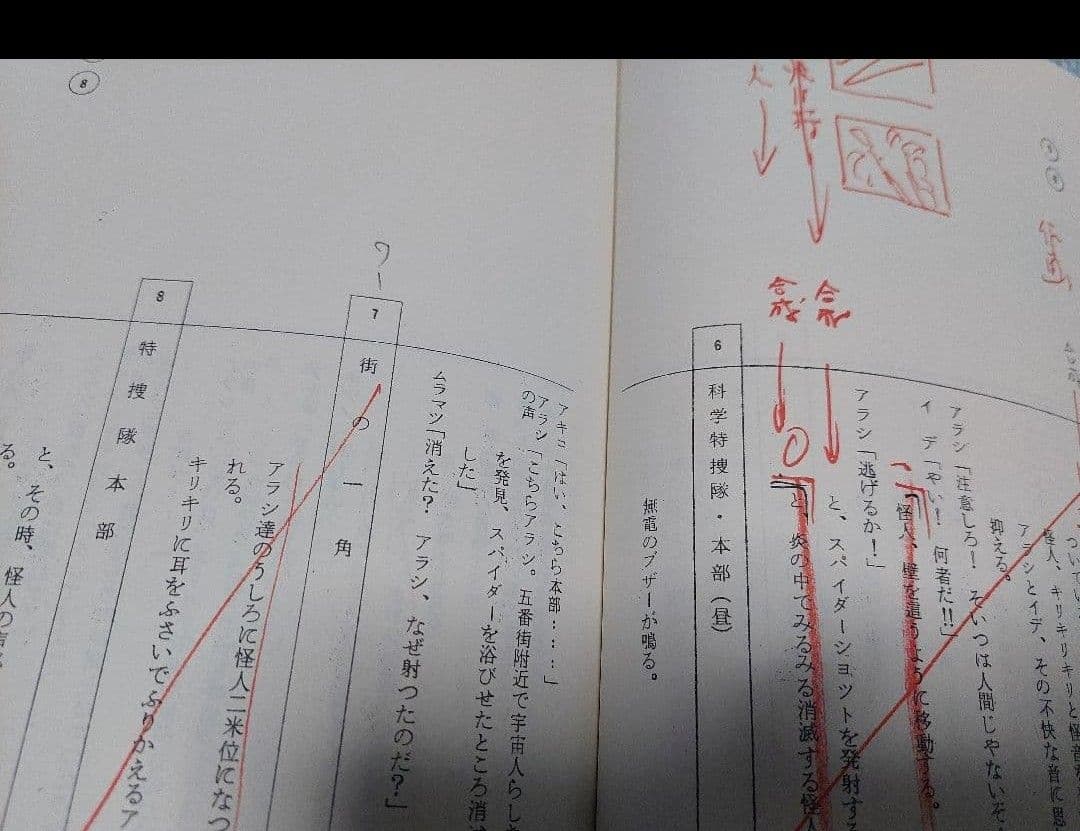 合成
合成
怪人、キリキリキリと怪音を
アラシとイデ、その不快な音に思
抑える。
アラシ「注意しろ！ そいつは人間じゃないぞ
イデ「やい！ 何者だ‼」
怪人、壁を這うように移動する。
アラシ「逃げるか！」
と、スパイダーショットを発射する
と、炎の中でみるみる消滅する怪人
6 科学特捜隊・本部（昼）
無電のブザーが鳴る。
アキコ「はい、こちら本部……」
アラシの声「こちらアラシ。五番街附近で宇宙人らしき
を発見、スパイダーを浴びせたところ消
した」
ムラマツ「消えた？ アラシ、なぜ射つたのだ？」
ワー
7 街の一角
アラシ達のうしろに怪人二米位になつ
れる。
キリキリに耳をふさいでふりかえるア
8 特捜隊本部
と、その時、怪人の声
る。
8